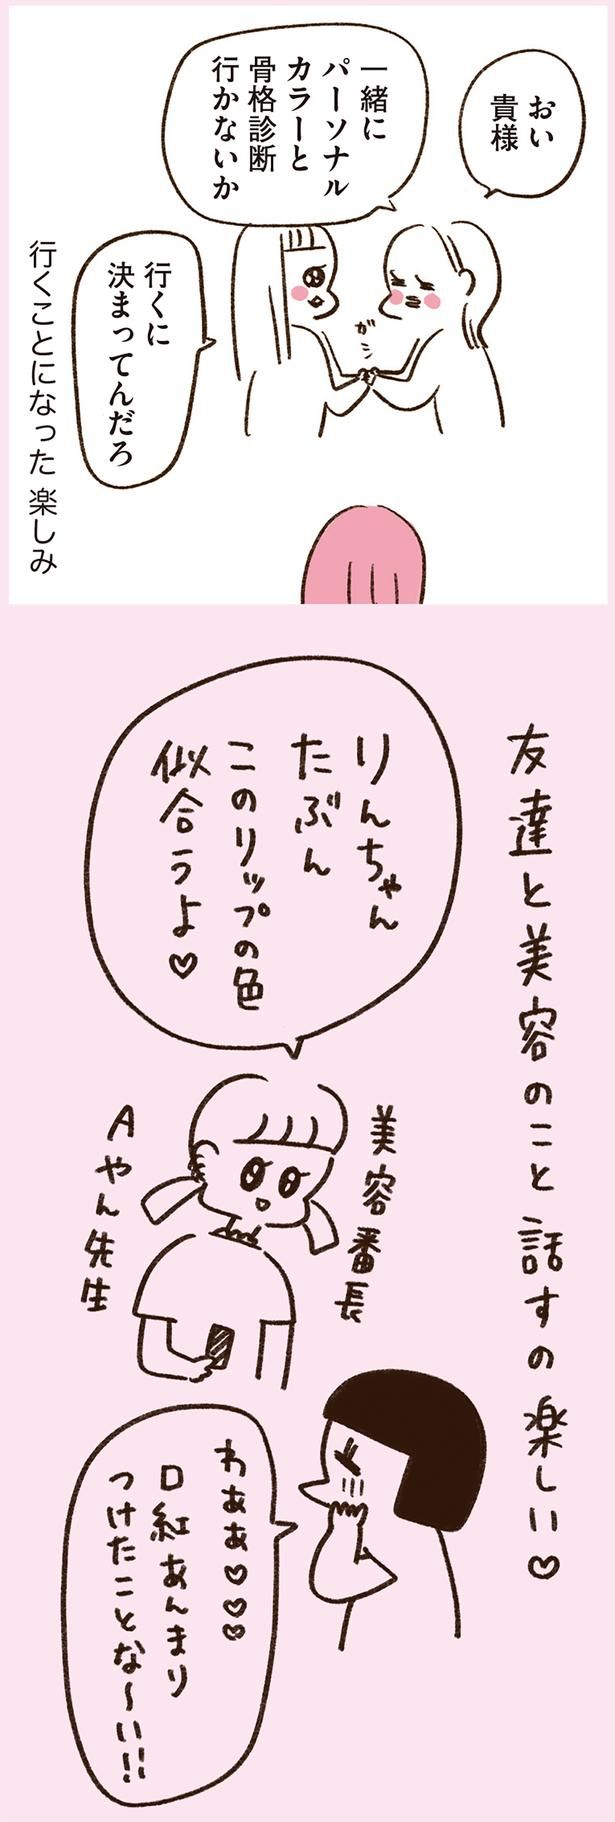 おい
貴様
一緒に
パーソナル
カラーと
骨格診断
行かないか
ガシ
行くに
決まってんだろ
行くことになった 楽しみ
友達と美容のこと話すの楽しい♡
りんちゃん
たぶん
このリップの色
似合うよ♡
美容番長
Aやん先生
わぁぁ♡♡♡
口紅あんまり
つけたことな〜い!!